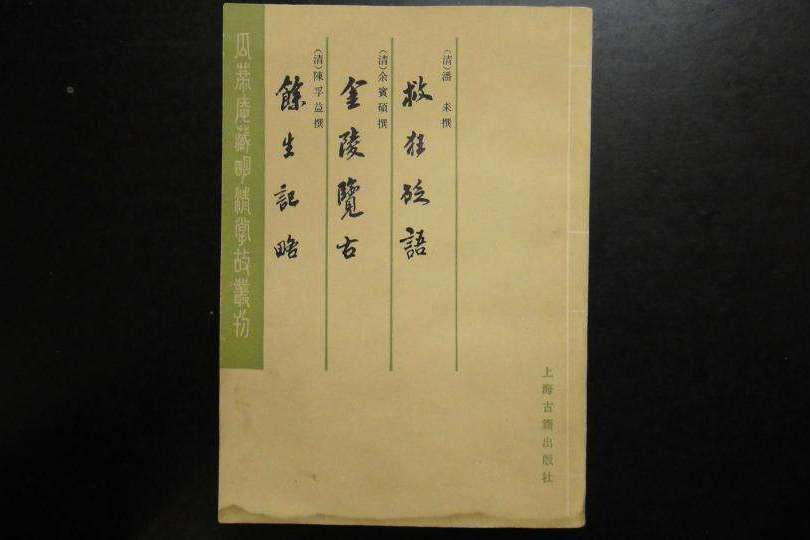 (清)潘 耒撰
救狂砭語
(清)余賓碩撰
金陵覽古
(清)陳孚益撰
餘生記略
瓜蒂庵藏明清掌故叢刊
上海古籍出版社